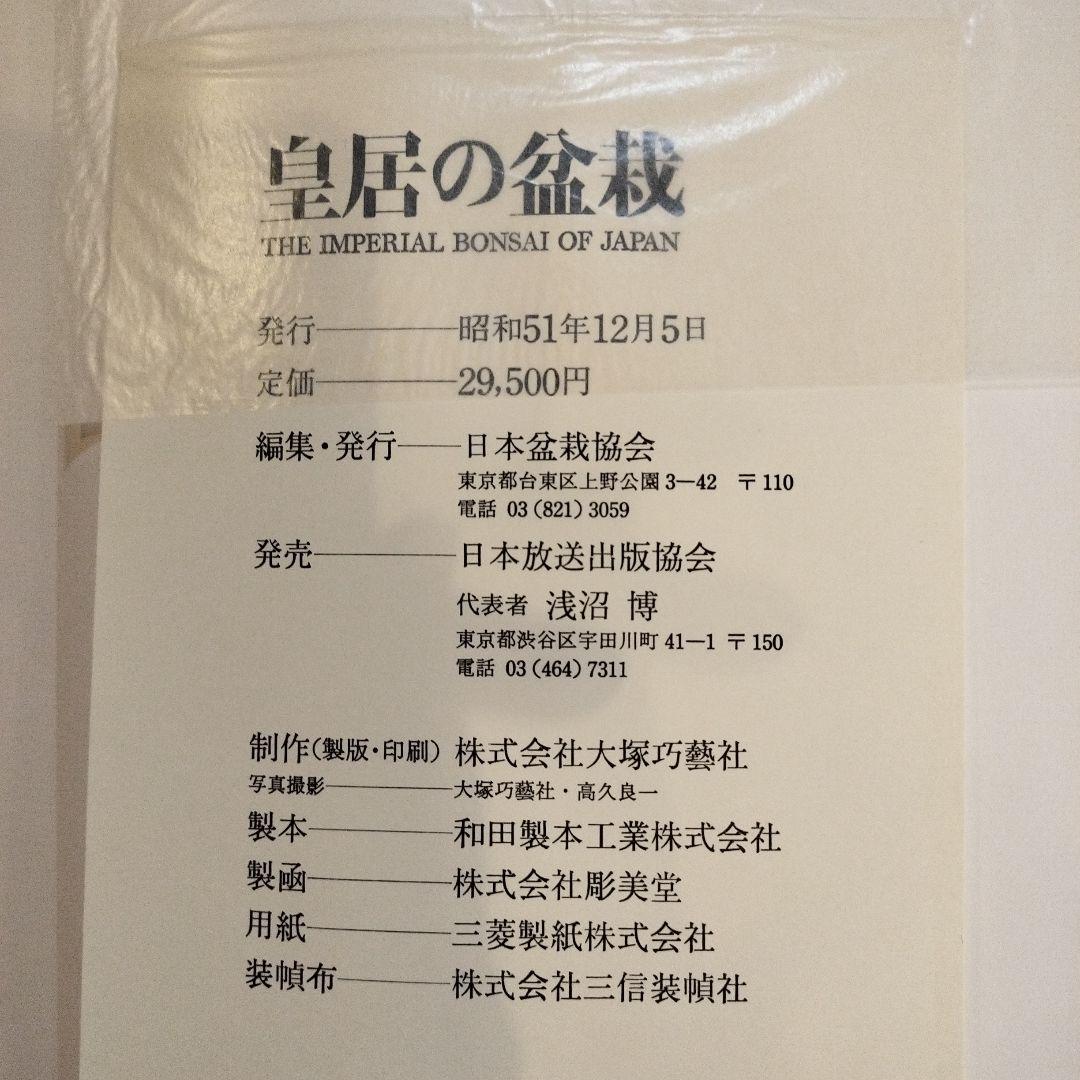 皇居の盆栽
THE IMPERIAL BONSAI OF JAPAN
発行――――昭和51年12月5日
定価――――29,500円
編集・発行――日本盆栽協会
東京都台東区上野公園3―42 〒110
電話 03(821)3059
発売――――日本放送出版協会
代表者 浅沼 博
東京都渋谷区宇田川町41―1 〒150
電話 03(464)7311
制作(製版・印刷) 株式会社大塚巧藝社
写真撮影――――大塚巧藝社・高久良一
製本――――和田製本工業株式会社
製函――――株式会社彫美堂
用紙――――三菱製紙株式会社
装幀布――――株式会社三信装幀社